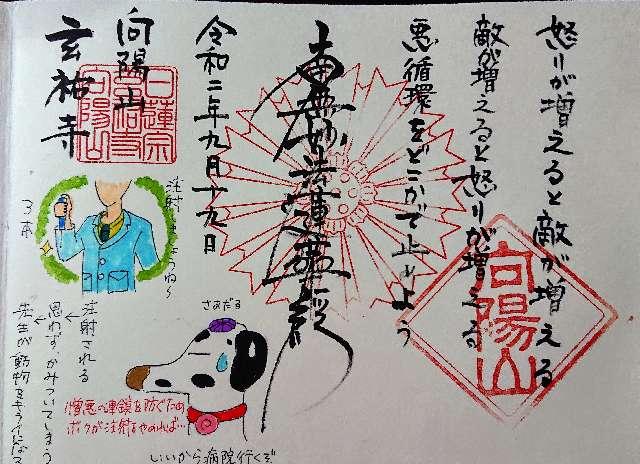 怒りが増えると敵が増える
敵が増えると怒りが増える
悪循環をどこかで止めよう
南無妙法蓮華経
令和二年九月十九日
向陽山
玄祐寺
日蓮宗
玄祐寺
向陽山
向陽山
注射しましょうね〜
3本
注射される
↓
思わずかみついてしまう
↓
先生が動物をキライになる
さあだる
憎悪の連鎖を防ぐため
ボクが注射をやめれば…
いいから病院行くぞ